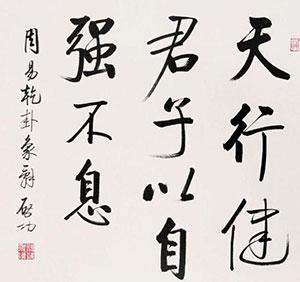 天行健
君子以自
强不息
周易乾卦象辭 啓功